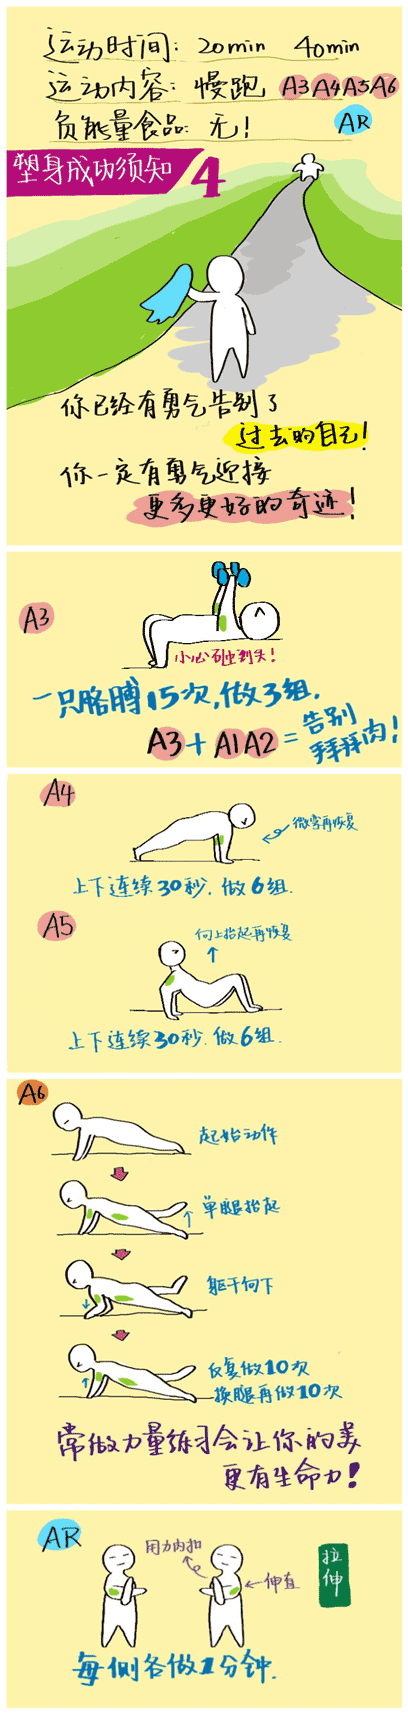 运动时间: 20min 40min
运动内容: 慢跑 A3 A4 A5 A6
负能量食品: 无! AR
塑身成功须知 4
你已经有勇气告别了
过去的自己!
你一定有勇气迎接
更多更好的奇迹!
A3
小心砸到头!
一只胳膊15次,做3组.
A3+A1A2=告别
拜拜肉!
A4
微弯再恢复
上下连续30秒.做6组.
A5
向上抬起再恢复
上下连续30秒.做6组.
A6
起始动作
单腿抬起
躯干向下
反复做10次
换腿再做10次
常做力量练习会让你的美
更有生命力!
AR
用力内扣
伸直
拉伸
每侧各做1分钟.